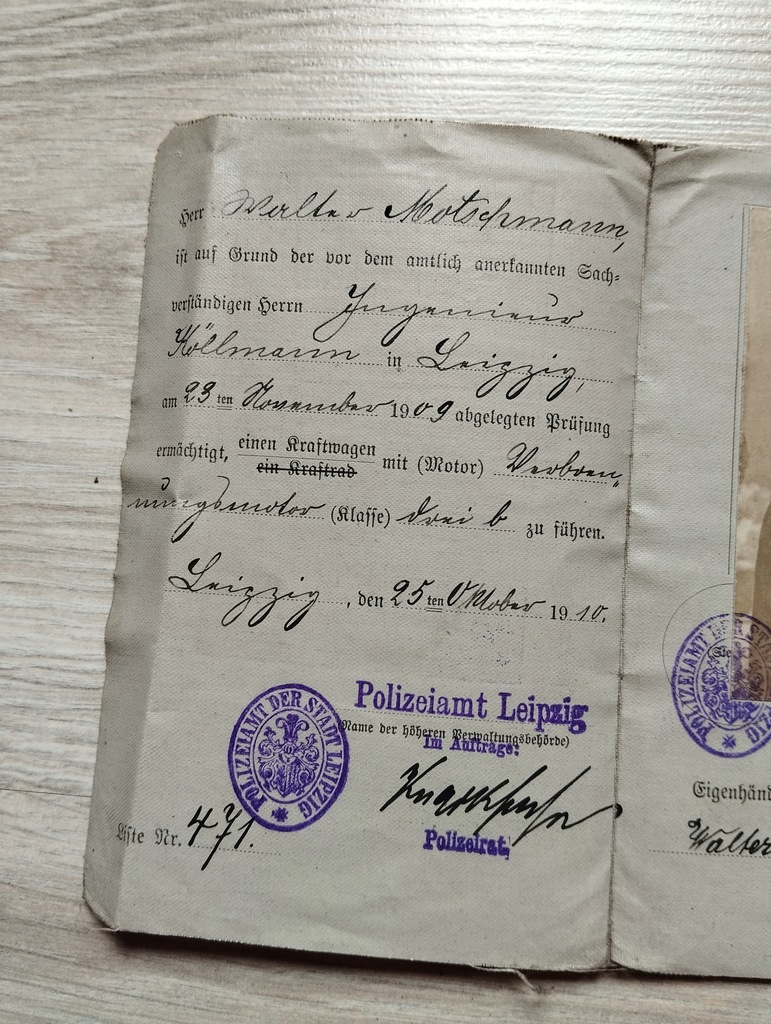 Herr Walter Motschmann,
ist auf Grund der vor dem amtlich anerkannten Sach-
verständigen Herrn Ingenieur
Köllmann in Leipzig,
am 23ten November 1909 abgelegten Prüfung
ermächtigt, einen Kraftwagen
ein Kraftrad
mit (Motor) Verbren-
nungsmotor (Klasse) drei b zu führen.
Leipzig, den 25ten Oktober 1910.
Polizeiamt Leipzig
(Name der höheren Verwaltungsbehörde)
Im Auftrage:
POLIZEIAMT DER STADT LEIPZIG
Polizeirat
Liste Nr. 471.
POLIZEIAMT DER STADT
Eigenhänd
Walter